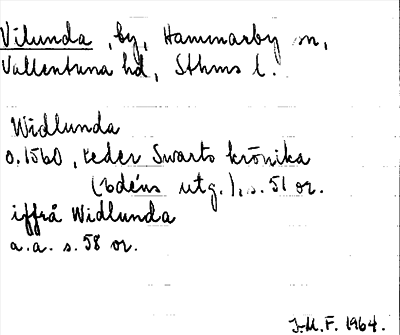 Vilunda, by, Hammarby sn,
Vallentuna hd, Sthms l.
Widlunda
o. 1560, Peder Swarts krönika
(Edéns utg.), s. 51 or.
iffrå Widlunda
a.a. s. 58 or.
J.M.F. 1964.